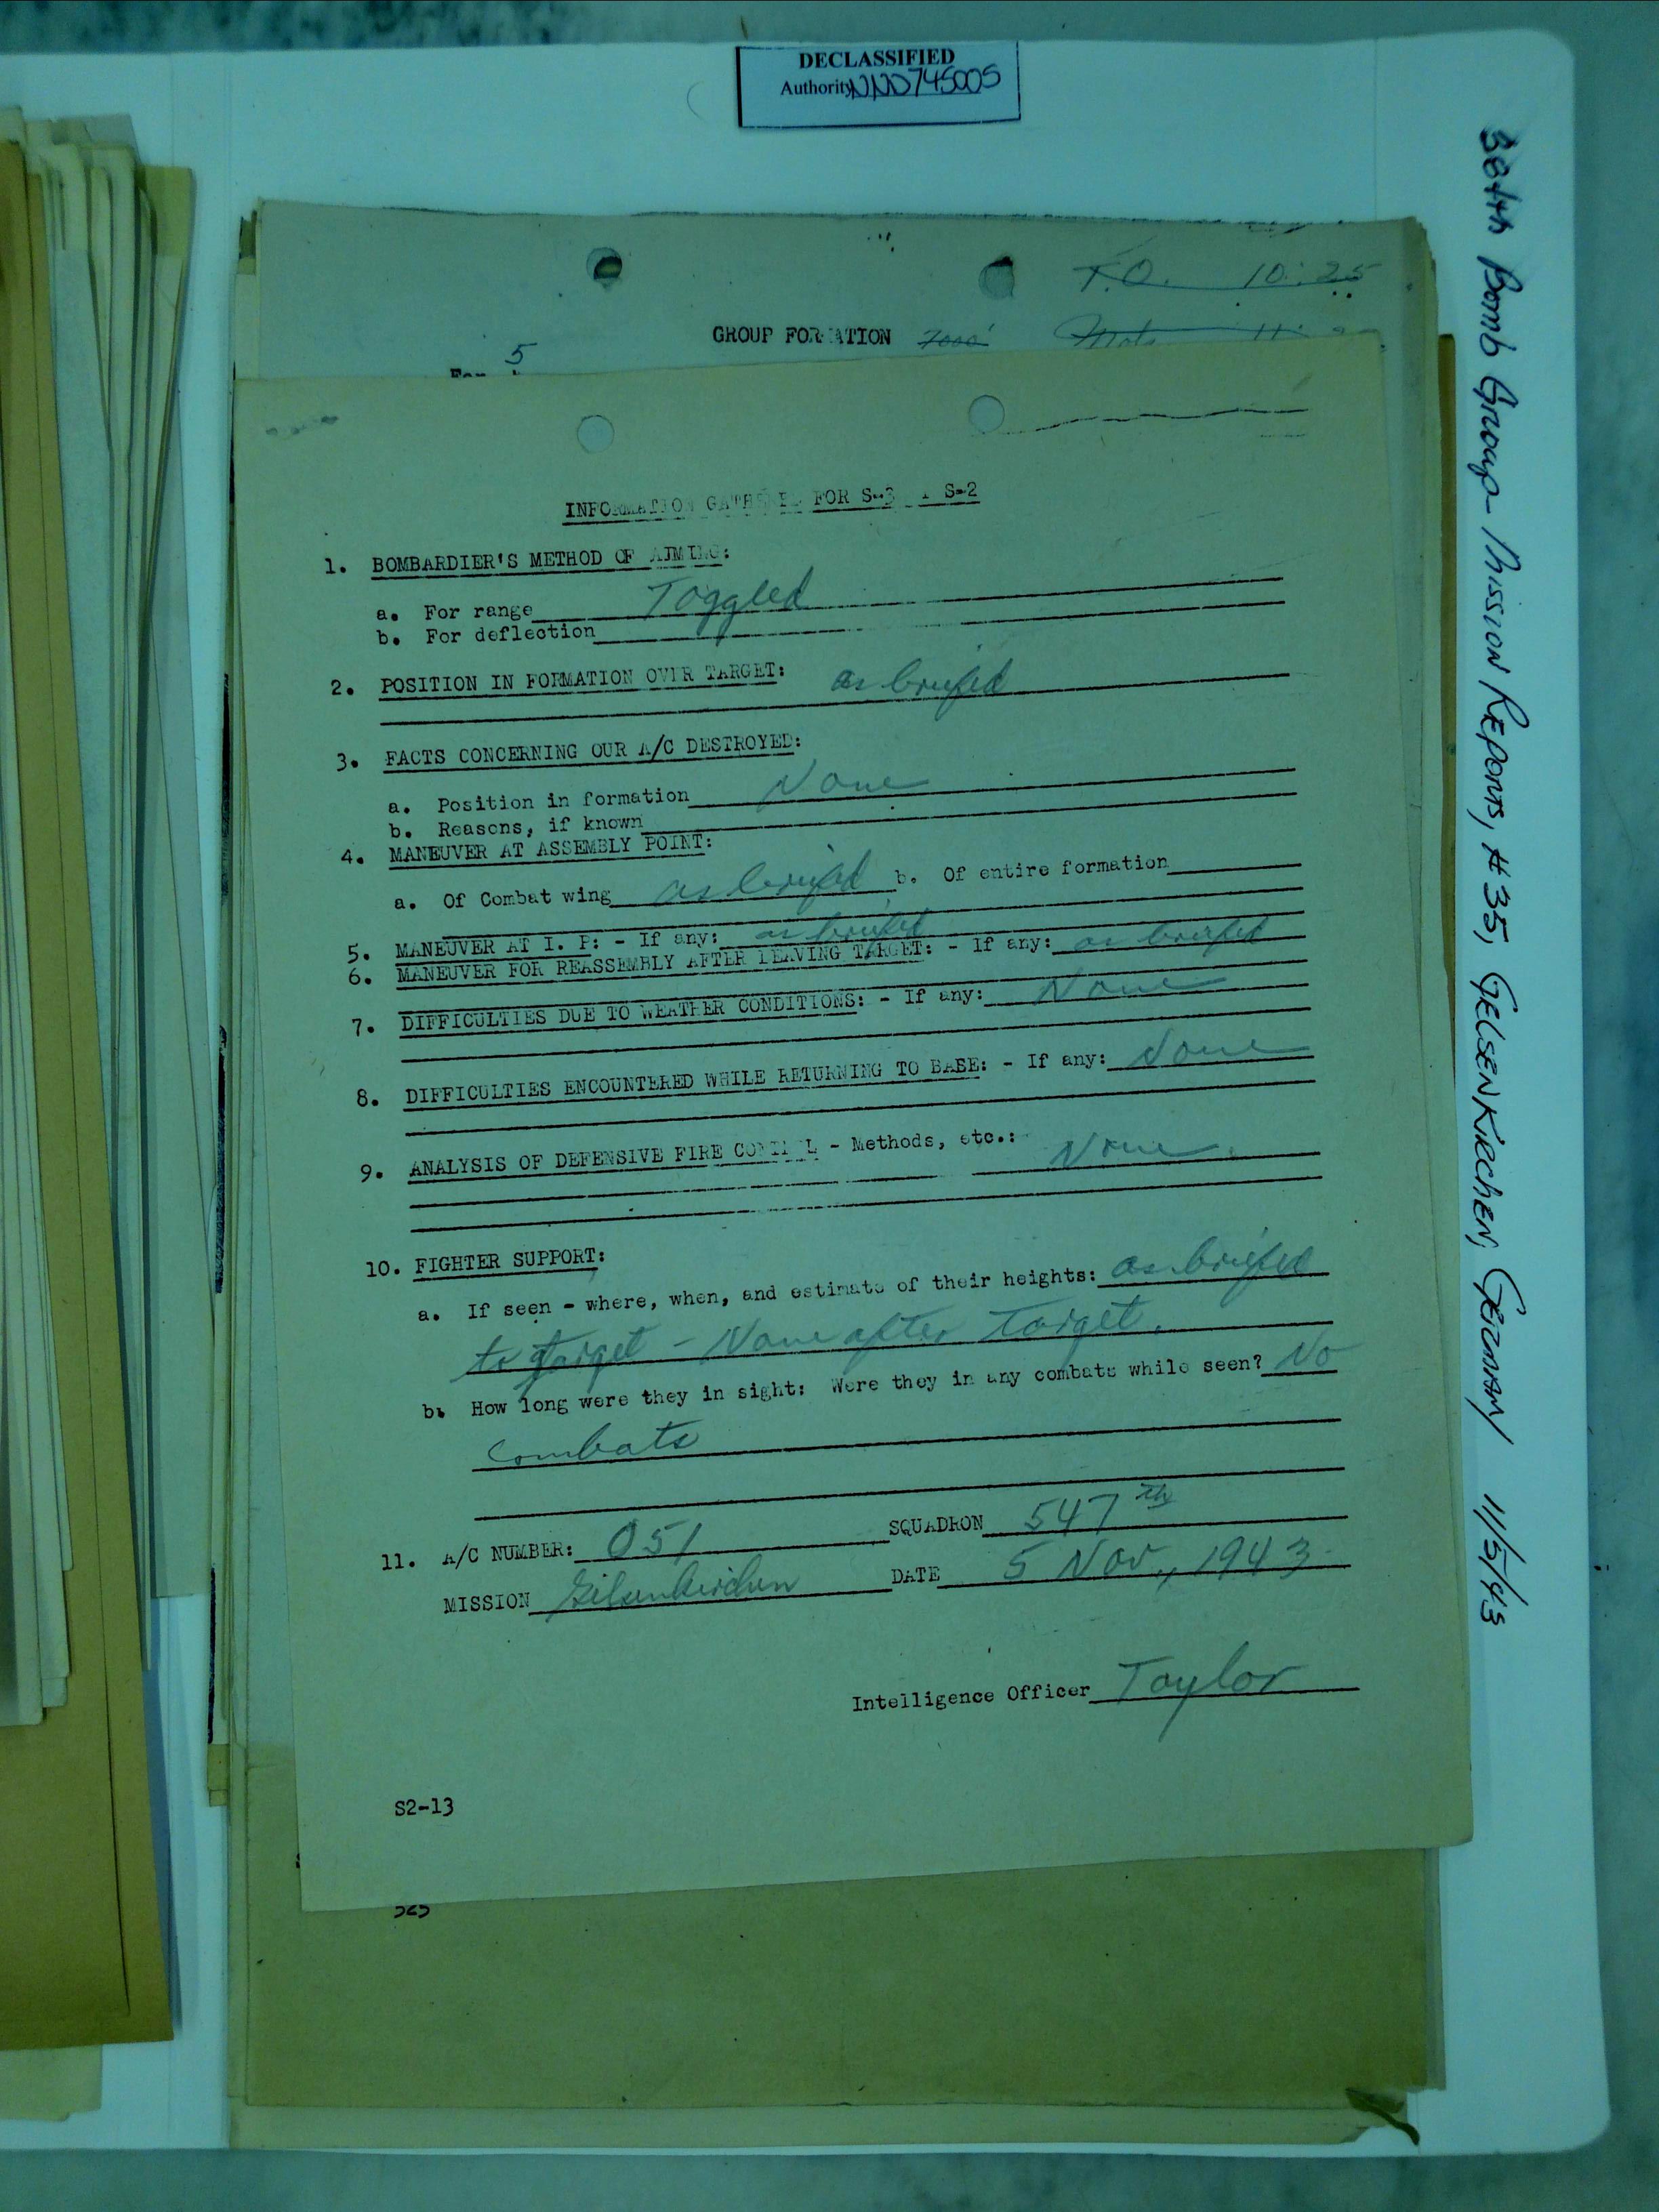 DECLASSIFIED
Authority NND745005
384th Bomb Group Mission Reports, #35, GELSENKIRCHEN, GERMANY 11/5/43
T.O. 10:25
GROUP FORMATION 7000'
5
INFORMATION GATHERED FOR S-3 S-2
1. BOMBARDIER'S METHOD OF AIMING:
a. For range Toggled
b. For deflection
2. POSITION IN FORMATION OVER TARGET: as briefed
3. FACTS CONCERNING OUR A/C DESTROYED:
a. Position in formation None
b. Reasons, if known
4. MANEUVER AT ASSEMBLY POINT:
a. Of Combat wing as briefed b. Of entire formation
5. MANEUVER AT I. P: - If any: as briefed
6. MANEUVER FOR REASSEMBLY AFTER LEAVING TARGET: - If any: as briefed
7. DIFFICULTIES DUE TO WEATHER CONDITIONS: - If any: None
8. DIFFICULTIES ENCOUNTERED WHILE RETURNING TO BASE: - If any: None
9. ANALYSIS OF DEFENSIVE FIRE CONTROL - Methods, etc.: None.
10. FIGHTER SUPPORT:
a. If seen - where, when, and estimate of their heights: as briefed
to target - None after target.
b. How long were they in sight: Were they in any combats while seen? No
Combats
11. A/C NUMBER: 051 SQUADRON 547th
MISSION Gelsenkirchen DATE 5 Nov., 1943
Intelligence Officer Taylor
S2-13